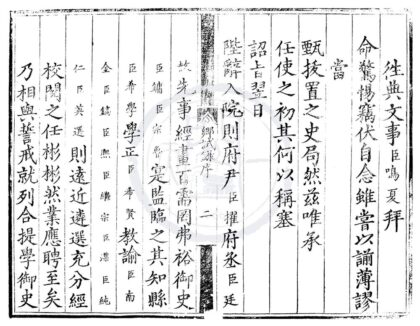 徃典文事臣鳴夏拜
命驚惕竊伏自念雖嘗以謭薄謬
當
甄拔置之史局然茲唯承
任使之初其何以稱塞
詔旨翌日
陛辭入院則府尹臣府丞臣廷
鄉試錄序 二
故先事經畫百需罔弗裕御史
臣鏽臣宗魯寔監臨之其知縣
臣希學學正臣希賢教諭臣南
金臣鎬臣熙臣繼宗臣澧臣純
仁臣英選則遠近遴選充分經
校閱之任彬彬然業應聘至矣
乃相與誓戒就列合提學御史